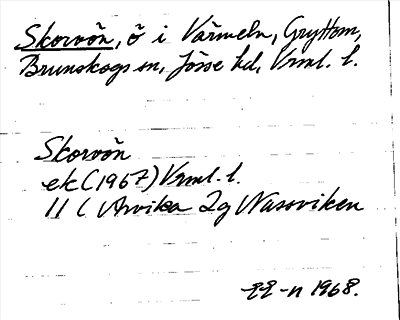 Skorvön, ö i Värmeln, Gryttom,
Brunskogs sn, Jösse hd, Vrml. l.
Skorvön
ek (1967) Vrml. l.
11 C Arvika 2g Nassviken
1968.